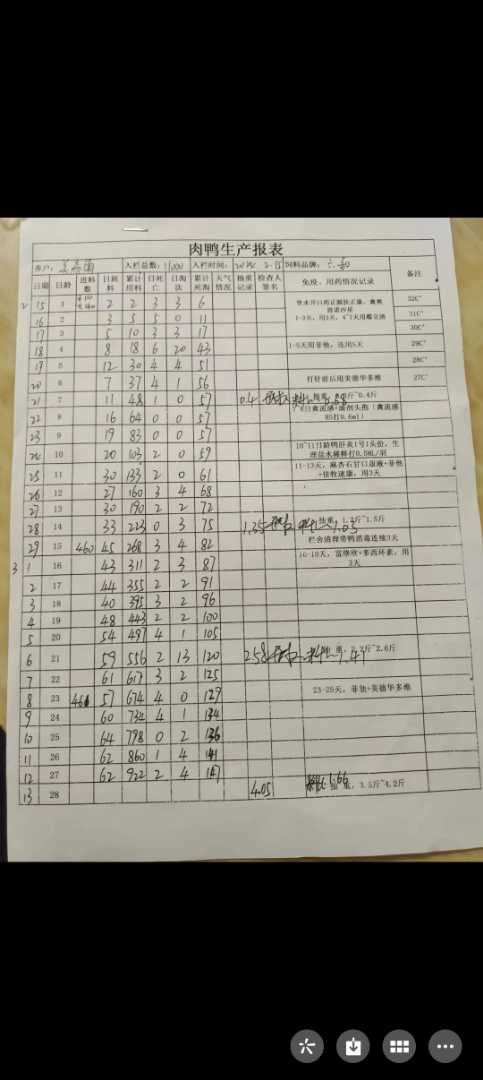 肉鸭生产报表
客户: 入栏总数: 11000 入栏时间: 2.15 饲料品牌: 六和
日期 日龄 进料数 日耗料 累计用料 日死亡 日淘汰 累计死淘 天气情况 抽重记录 检查人签名 免疫、用药情况记录 备注
2 15 1 2 2 3 3 6 32C°
16 2 3 5 5 0 11 1-3天, 31C°
17 3 5 10 3 3 17 30C°
18 4 8 18 6 20 43 1-5天用菲他,连用5天 29C°
19 5 12 30 4 4 51 28C°
20 6 7 37 4 1 56 打针前后用美德华多维 27C°
21 7 11 48 1 0 57 0.4
22 8 16 64 0 0 57
23 9 19 83 0 0 57
24 10 20 103 2 0 59 10~11日龄鸭肝炎1号1头份,生理盐水稀释打0.5ML/羽
25 11 30 133 2 0 61 11-13天,麻杏石甘口服液+菲他
26 12 27 160 3 4 68
27 13 30 190 2 2 72
28 14 33 223 0 3 75 1.35 料比1.05
29 15 460 45 268 3 4 82 栏舍清理带鸭消毒连续3天
3 1 16 43 311 2 3 87 16-18天, 用3天
2 17 44 355 2 2 91
3 18 40 395 3 2 96
4 19 48 443 2 2 100
5 20 54 497 4 1 105
6 21 59 556 2 13 120 2.58 1.47
7 22 61 617 3 2 125
8 23 57 674 4 0 129 23-25天,菲独+美德华多维
9 24 60 734 4 1 134
10 25 64 798 0 2 136
11 26 62 860 1 4 141
12 27 62 922 2 4 147
13 28 4.05 料比1.66 重,3.5斤~4.2斤